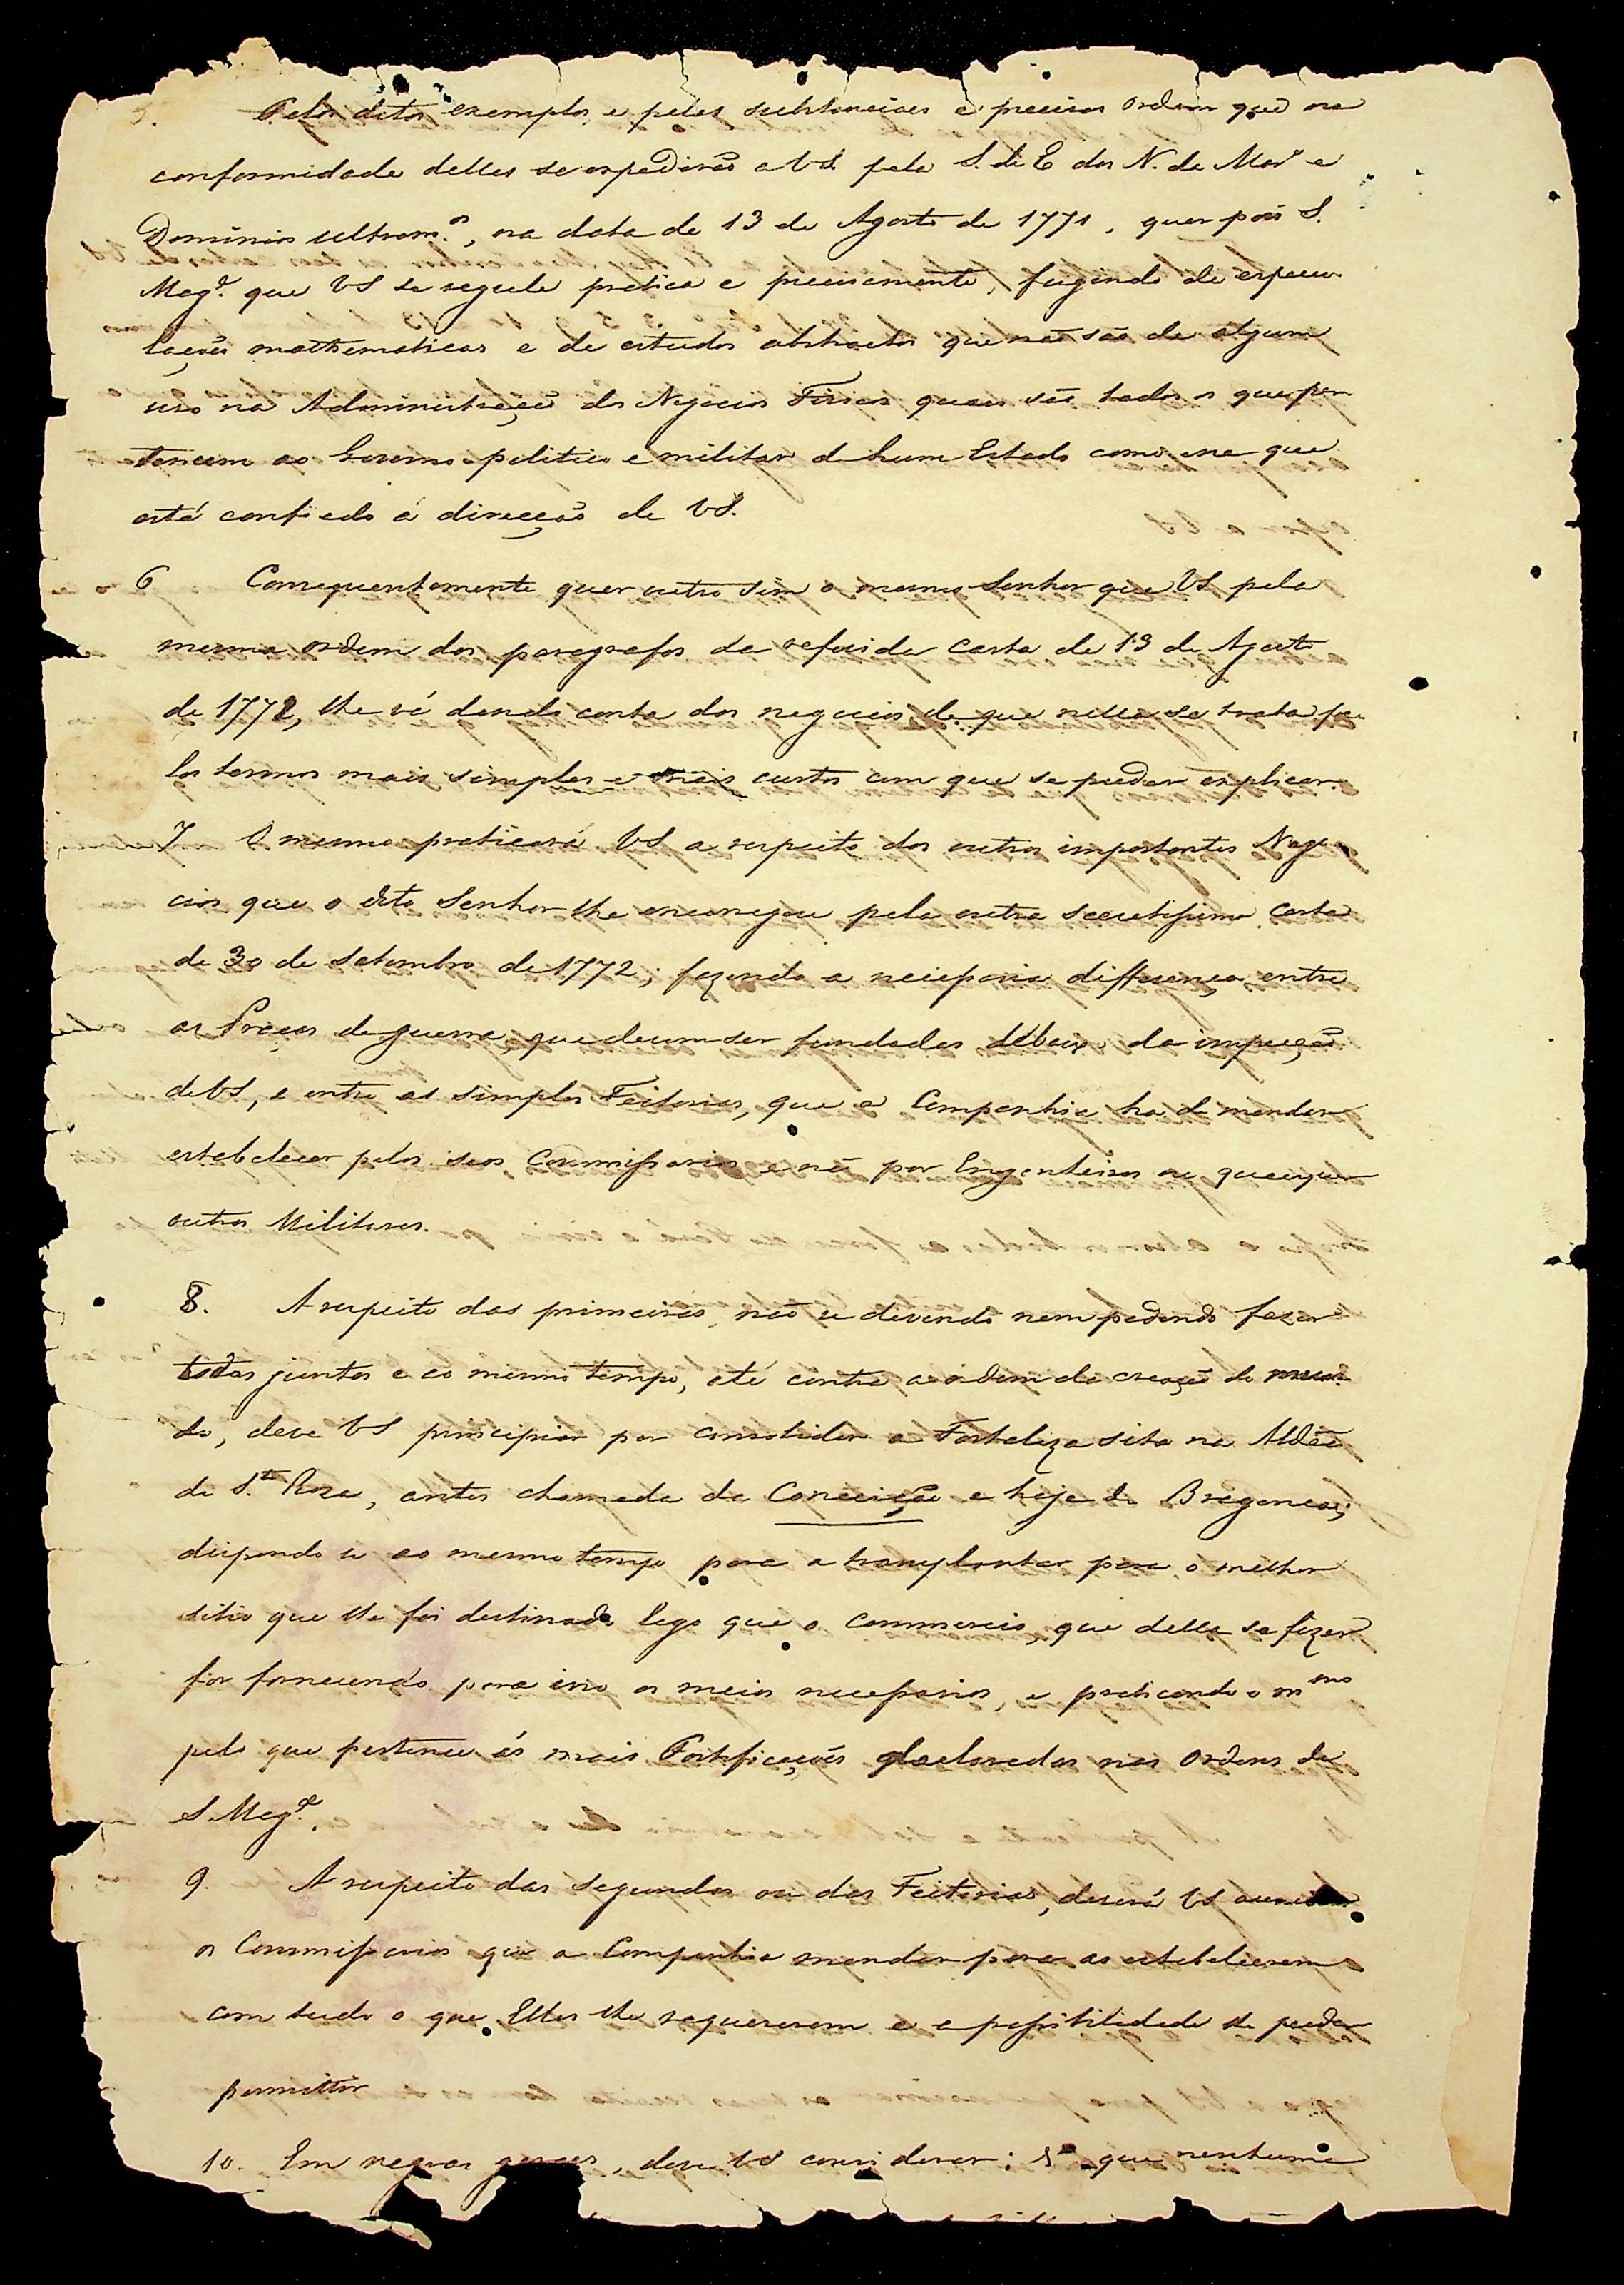 5. Pelos ditos exemplos, e pelas substanciaes e precisas Ordens que na
conformidade delles se expedirão a VS. pela S. de E dos N. da Mar.ª e
Dominios ultram.os, na data de 13 de Agosto de 1771, quer pois S.
Mag.e que VS se regule pratica e precisamente, fugindo de especu-
lações mathematicas e de estudos abstractos que não são de algum
uso na Administração dos Negocios Fisicos quaes são todos os que per
tencem ao Governo politico e militar de hum Estado como esse que
está confiado á direcção de VS.
6 Consequentemente quer outro sim o mesmo Senhor que VS pela
mesma ordem dos paragrafos da referida carta de 13 de Agosto
de 1772, lhe vá dando conta dos negocios de que nella se trata pe-
los termos mais simples e mais curtos com que se puder explicar.
7 O mesmo praticará VS a respeito dos outros importantes Nego-
cios que o dito Senhor lhe encarregou pela outra secretissima carta
de 30 de Setembro de 1772; fazendo a necessaria differença entre
as Praças de guerra, que devem ser fundadas debaixo da inspecção
de VS, e entre as simples Feitorias, que a Companhia ha de mandar
estabelecer pelos seos Commissarios e não por Engenheiros ou quaesquer
outros Militares.
8. A respeito das primeiras, não se devendo nem podendo fazer
todas juntas e ao mesmo tempo, até contra a ordem da creação do mun-
do, deve VS principiar por consolidar a Fortaleza sita na Aldêa
de S.ta Rosa, antes chamada da Conceição e hoje de Bragança;
dispondo se ao mesmo tempo para a transplantar para o melhor
sitio que lhe foi destinado logo que o commercio, que della se fizer
for fornecendo para isso os meios necessarios, e praticando o m.mo
pelo que pertence ás mais Fortificações declaradas nas Ordens de
S. Mag.e.
9. A respeito das segundas ou das Feitorias, deverá VS
os Commissarios que a Companhia mandar para as estabelecerem
com tudo o que Elles lhe requererem e a possibilidade lhe puder
permittir
10. Em regras geraes, deve VS considerar: 1º que nenhuma